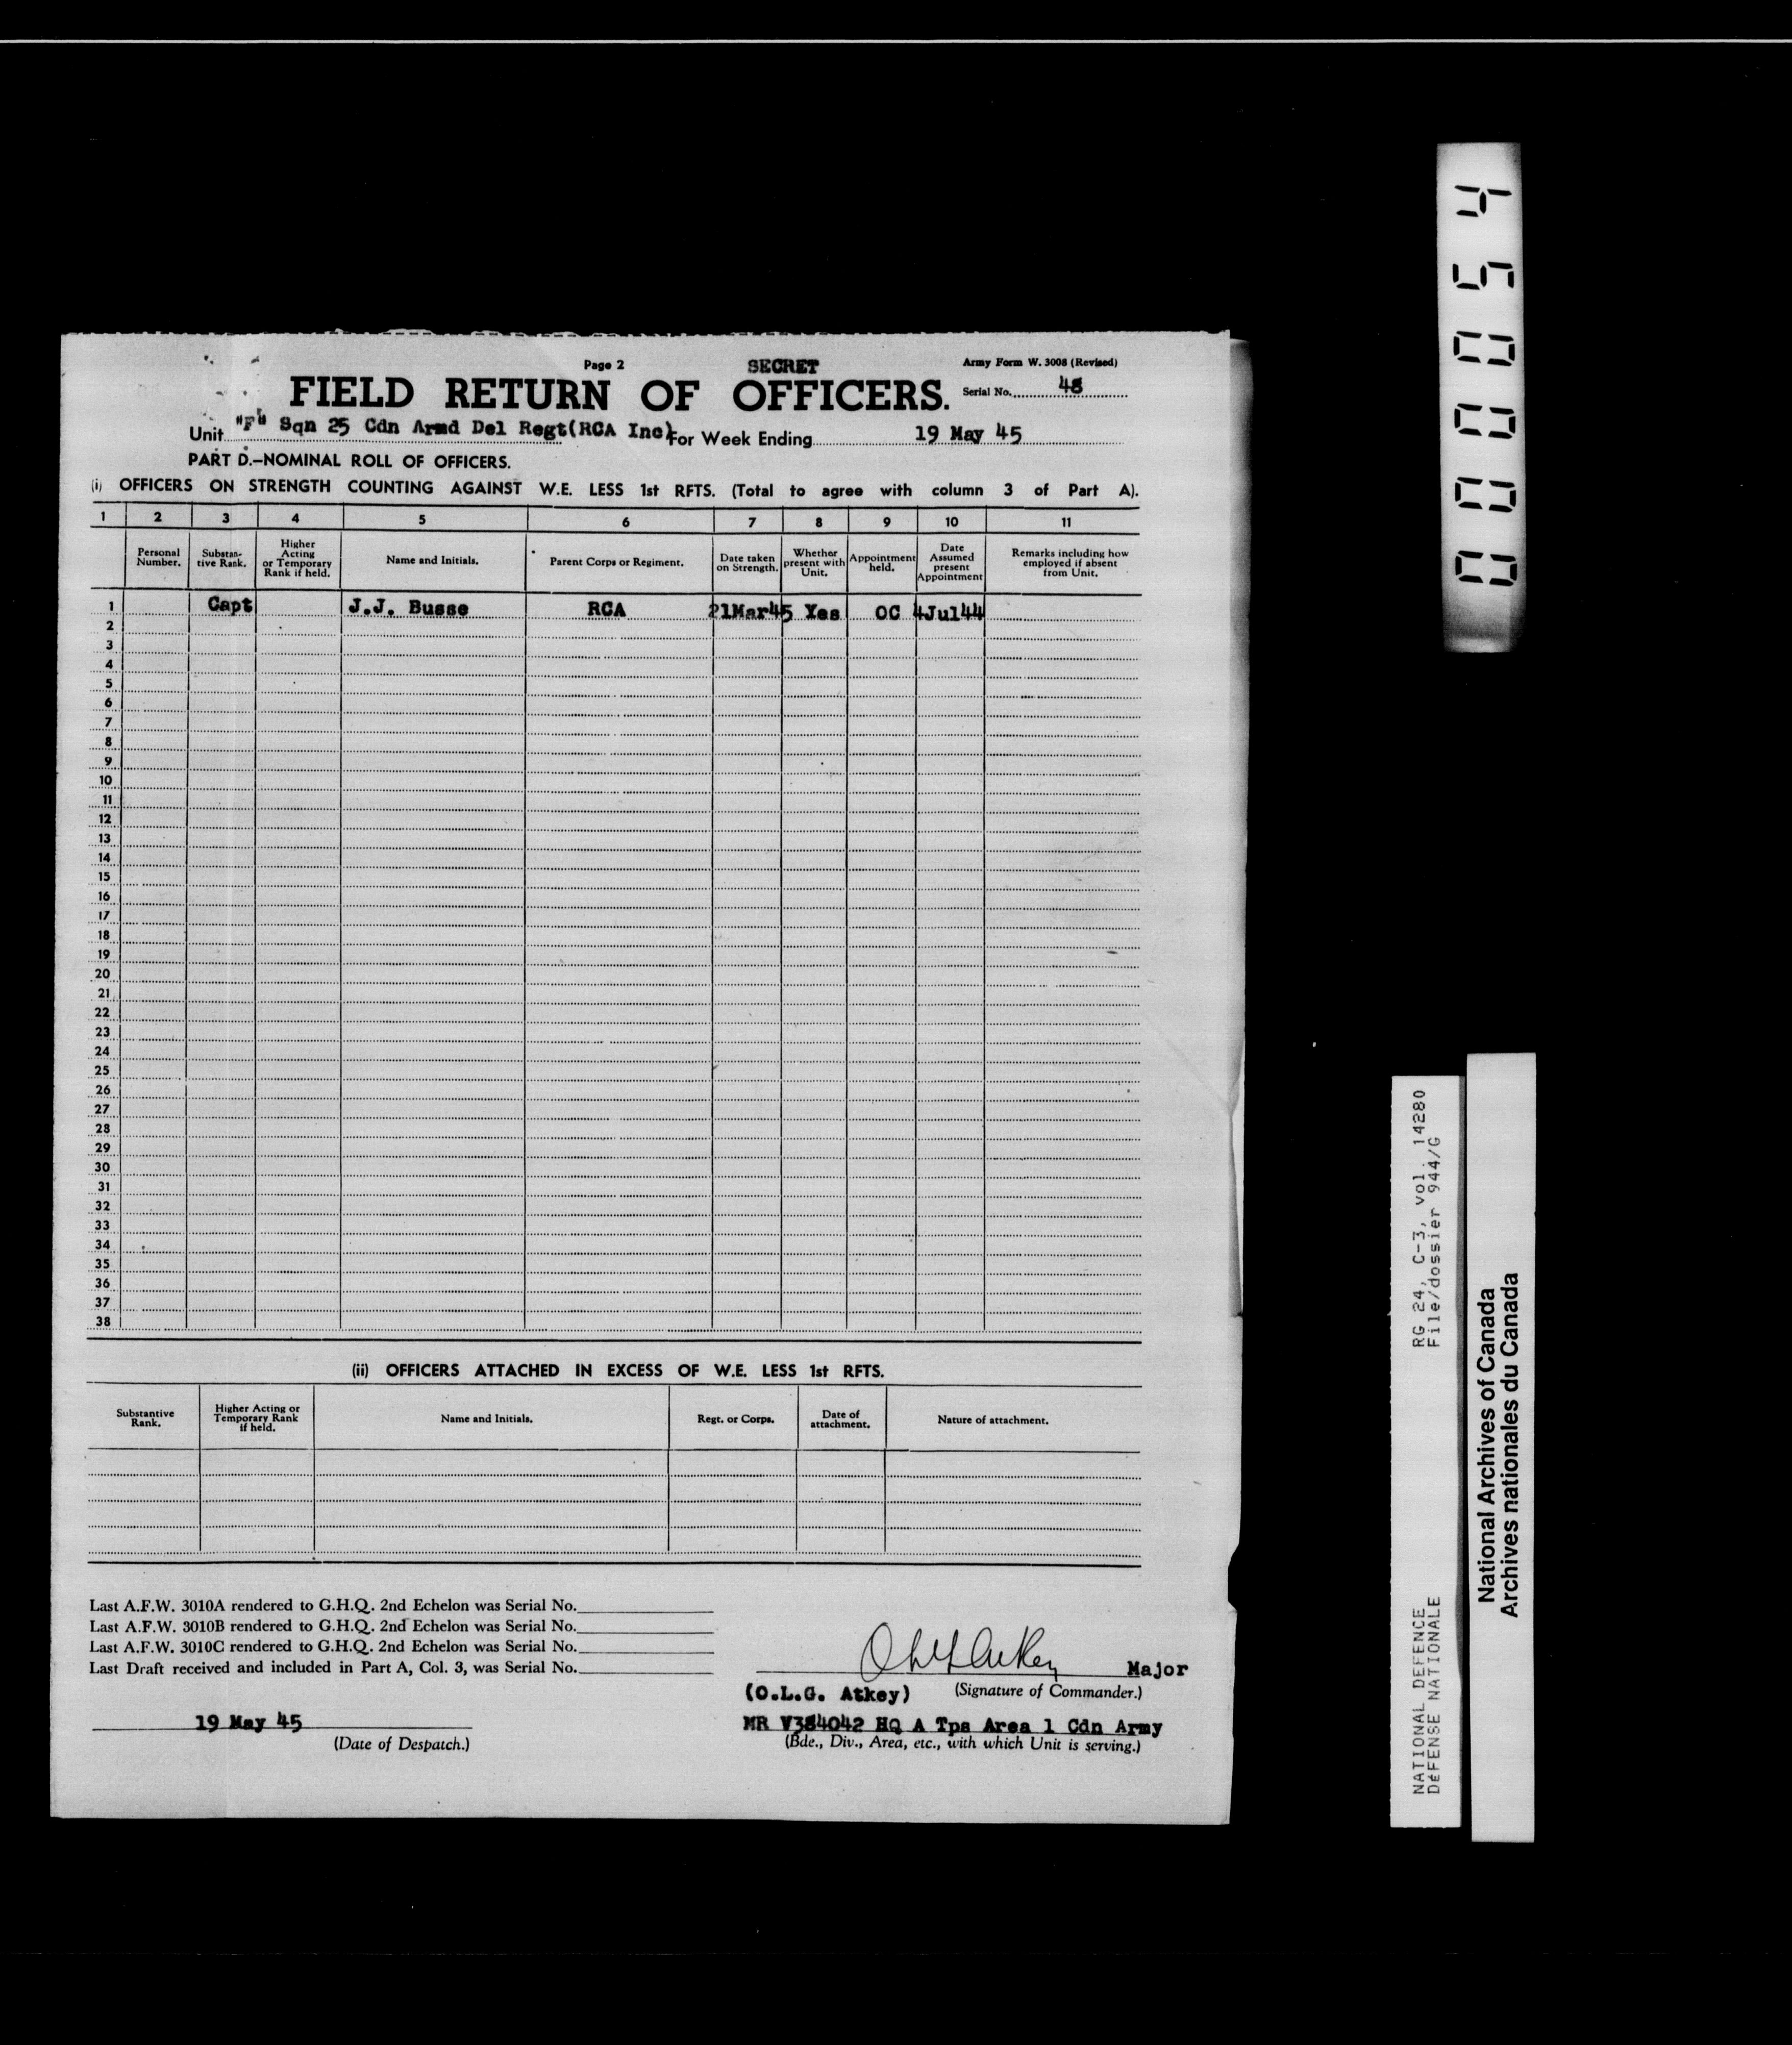 Page 2
SECRET
Army Form W. 3008 (Revised)
FIELD RETURN OF OFFICERS.
Serial No. 48
Unit "F" Sqn 25 Cdn Armd Del Regt(RCA Inc) For Week Ending 19 May 45
PART D.—NOMINAL ROLL OF OFFICERS.
(i) OFFICERS ON STRENGTH COUNTING AGAINST W.E. LESS 1st RFTS. (Total to agree with column 3 of Part A).
1 2 3 4 5 6 7 8 9 10 11
Personal Number. Substantive Rank. Higher Acting or Temporary Rank if held. Name and Initials. Parent Corps or Regiment. Date taken on Strength. Whether present with Unit. Appointment held. Date Assumed present Appointment Remarks including how employed if absent from Unit.
1 Capt J.J. Busse RCA 21Mar45 Yes OC 4Jul44
2
3
4
5
6
7
8
9
10
11
12
13
14
15
16
17
18
19
20
21
22
23
24
25
26
27
28
29
30
31
32
33
34
35
36
37
38
(ii) OFFICERS ATTACHED IN EXCESS OF W.E. LESS 1st RFTS.
Substantive Rank. Higher Acting or Temporary Rank if held. Name and Initials. Regt. or Corps. Date of attachment. Nature of attachment.
Last A.F.W. 3010A rendered to G.H.Q. 2nd Echelon was Serial No.
Last A.F.W. 3010B rendered to G.H.Q. 2nd Echelon was Serial No.
Last A.F.W. 3010C rendered to G.H.Q. 2nd Echelon was Serial No.
Last Draft received and included in Part A, Col. 3, was Serial No.
OLG Atkey Major
(O.L.G. Atkey) (Signature of Commander.)
19 May 45
(Date of Despatch.)
MR V384042 HQ A Tps Area 1 Cdn Army
(Bde., Div., Area, etc., with which Unit is serving.)
000054
RG 24, C-3, vol. 14280
File/dossier 944/G
NATIONAL DEFENCE
DéFENSE NATIONALE
National Archives of Canada
Archives nationales du Canada